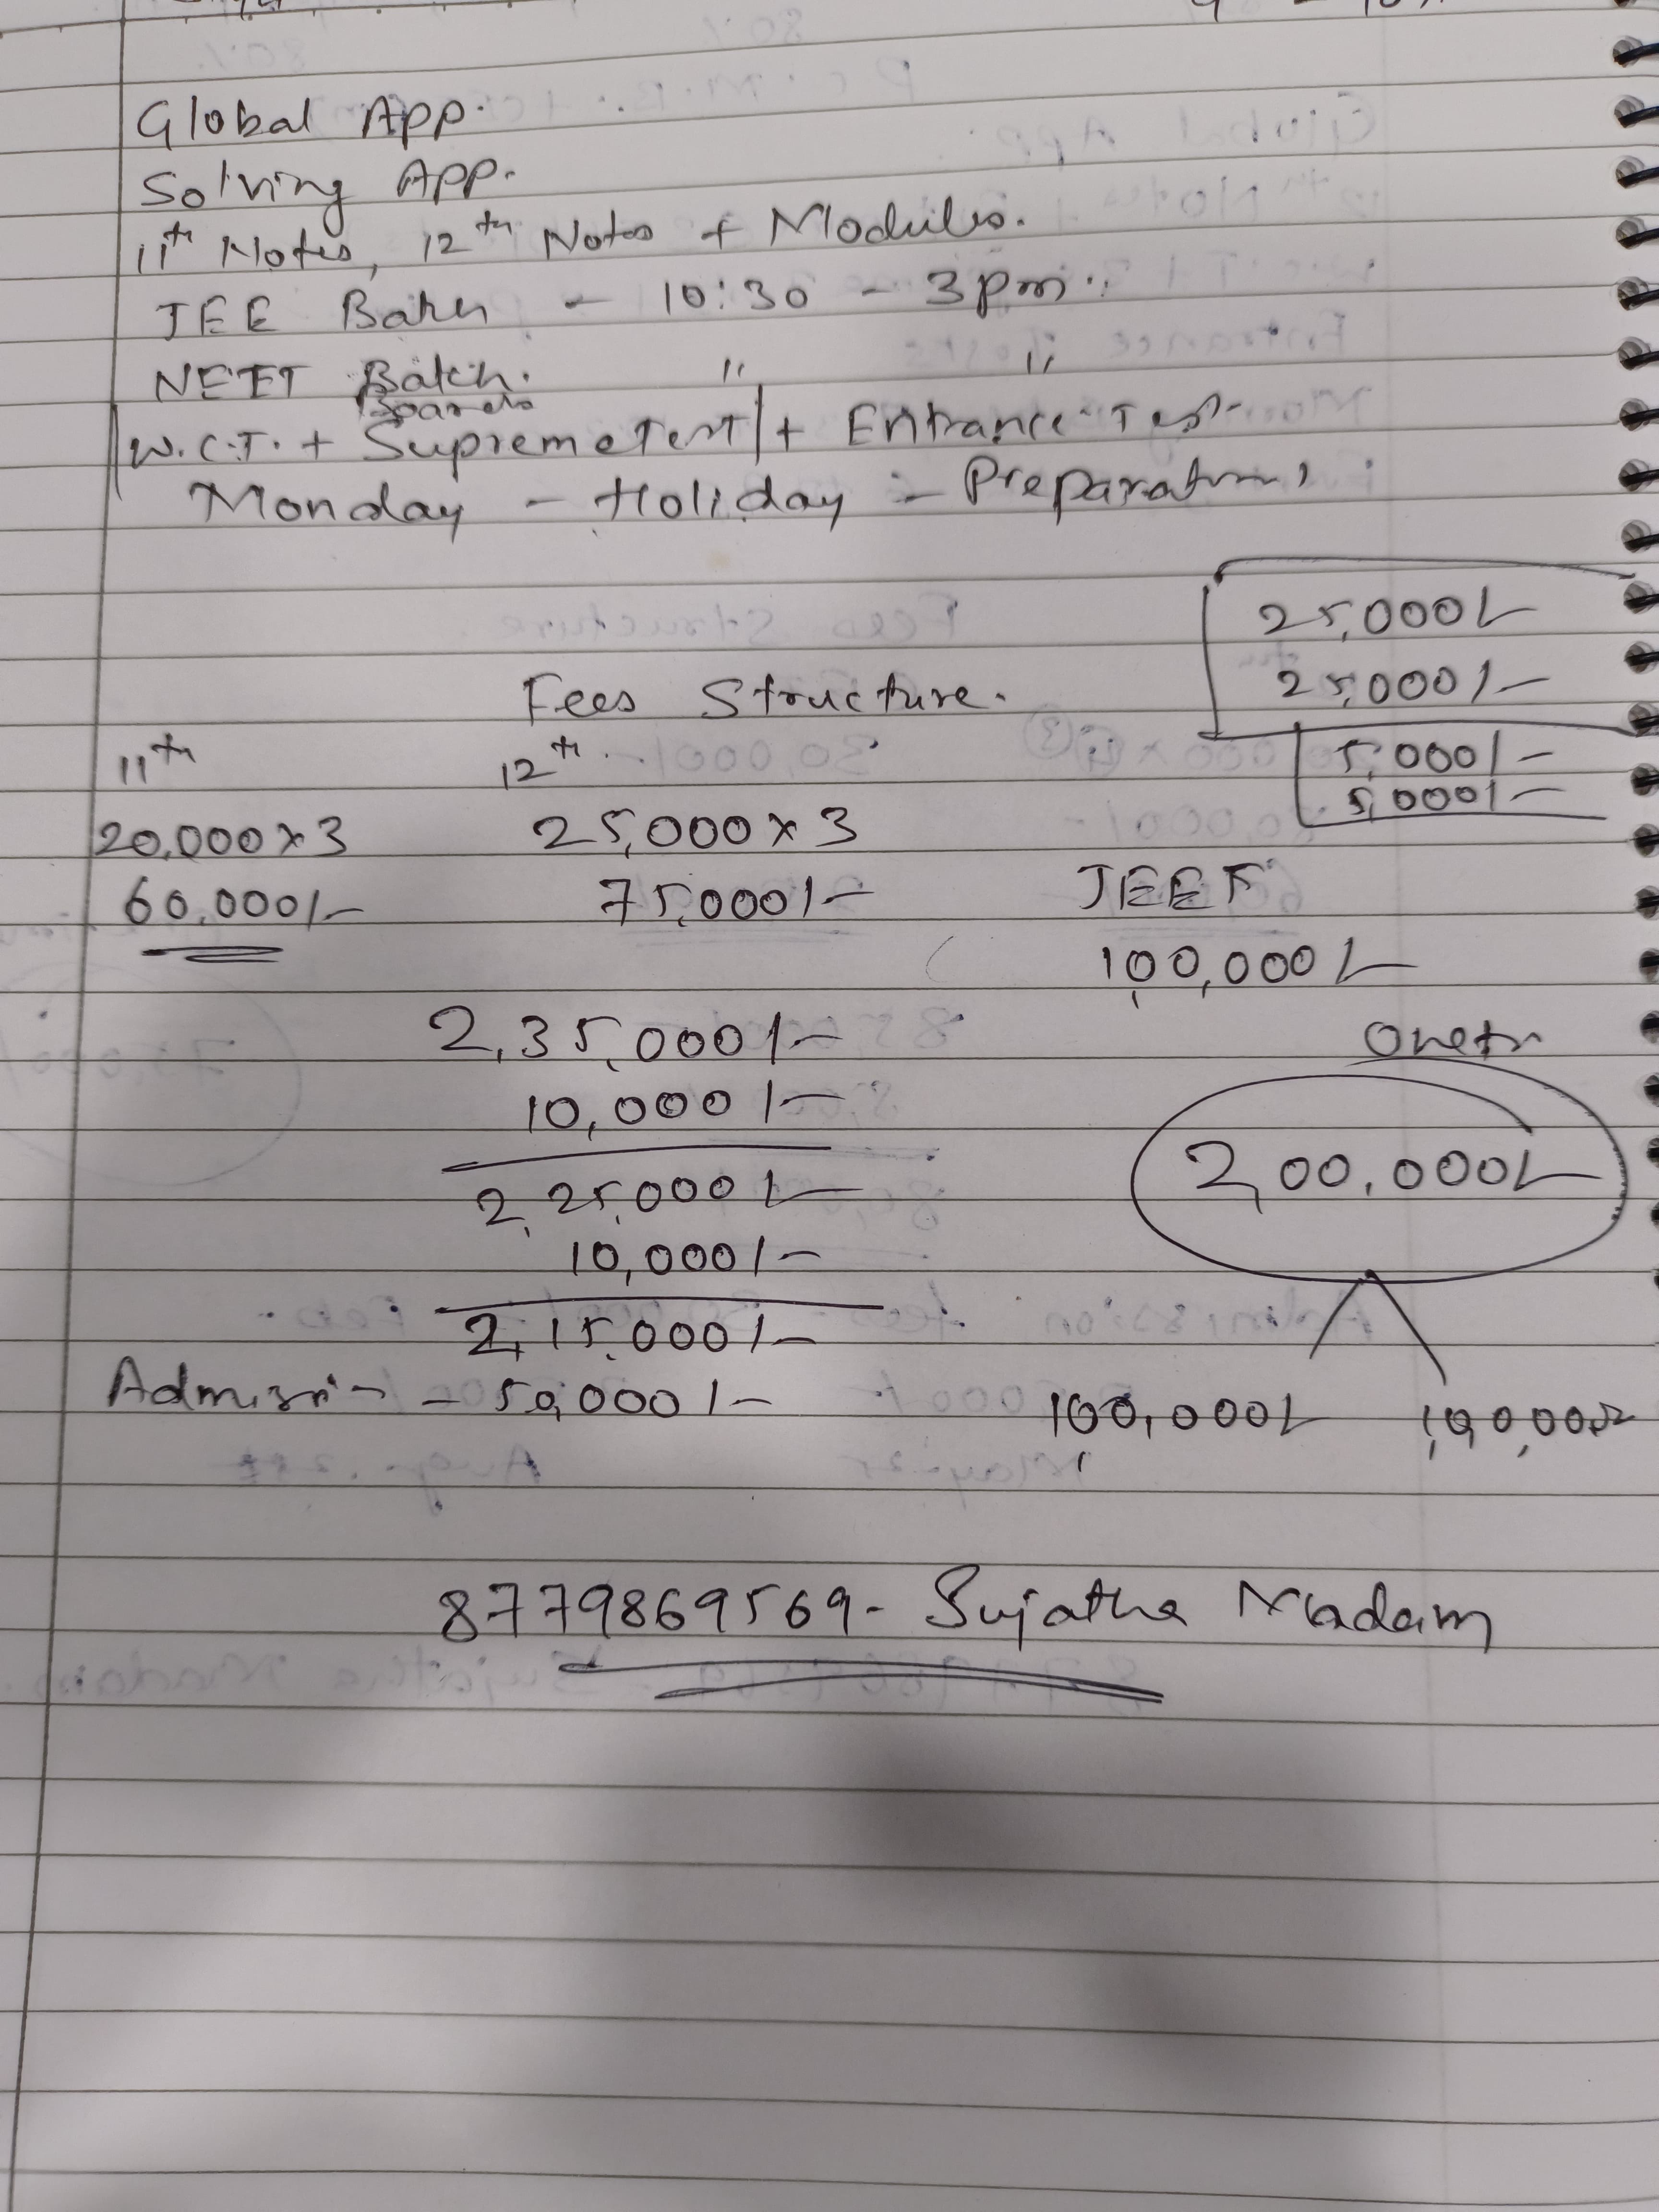 Global App.
Solving App.
11th Notes, 12th Notes + Modules.
JEE Batch - 10:30 - 3pm.
NEET Batch. " "
Boards
W.C.T. + Supreme Test + Entrance Test
Monday - Holiday - Preparation
25,000/-
25,000/-
Fees Structure.
5,000/-
5,000/-
11th 12th
20,000 x 3 25,000 x 3
60,000/- 75,000/- JEE
100,000/-
2,35,000/-
10,000/-
2,25,000/-
2,00,000/-
10,000/-
2,15,000/-
Admission - 50,000/- 100,000/- 1,00,000/-
8779869569 - Sujatha Madam